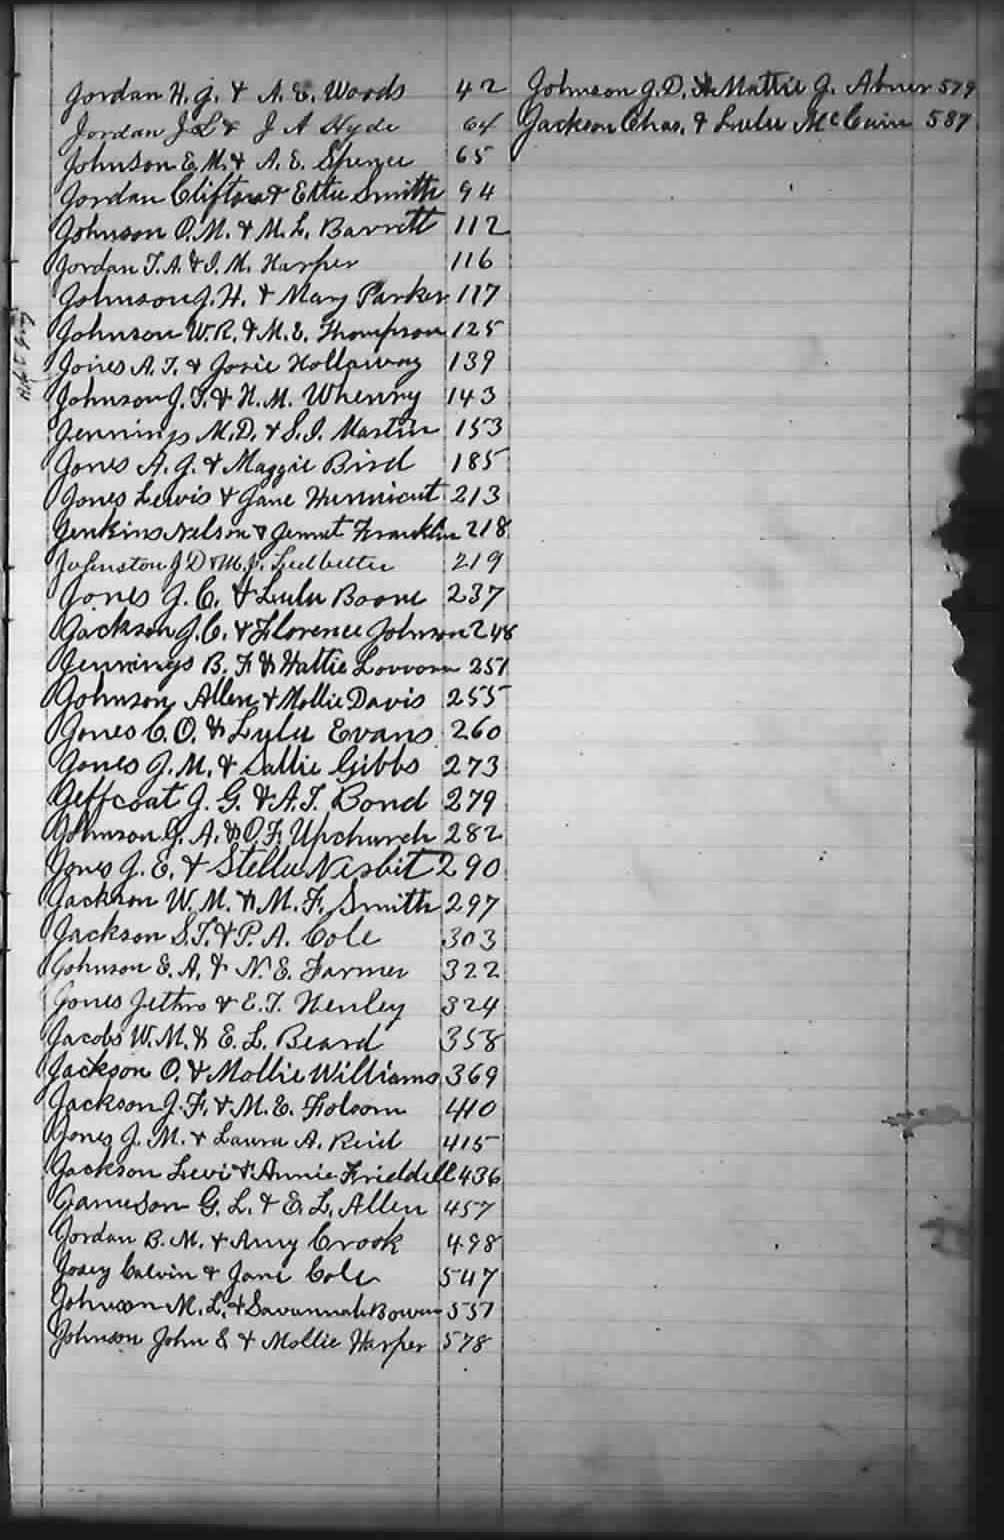 Jordan H. J. & A. E. Woods 42
Jordan J L & J A Hyde 64
Johnson E. M. & A. E. Spence 65
Jordan Clifton & Ettie Smith 94
Johnson O. M. & M. L. Barrett 112
Jordan T. A. & I. M. Harper 116
Johnson J. H. & Mary Parker 117
Johnson W. R. & M. E. Thompson 125
Jones A. T. & Josie Hollaway 139
Johnson J. T. & H. M. Whenry 143
Jennings M. D. & S. I. Martin 153
Jones A. J. & Maggie Bird 185
Jones Lewis & Jane Hunnicut 213
Jenkins Nelson & Jennet Franklin 218
Johnston J D & M. J. Ledbetter 219
Jones J. C. & Lulu Boone 237
Jackson J. C. & Florence Johnson 248
Jennings B. F. & Hattie Lovvorn 251
Johnson, Allen & Mollie Davis 255
Jones C. O. & Lulu Evans 260
Jones J. M. & Sallie Gibbs 273
Jeffcoat J. G. & A. T. Bond 279
Johnson G. A. & O. F. Upchurch 282
Jones J. E. & Stella Nesbit 290
Jackson W. M. & M. F. Smith 297
Jackson S. T. & P. A. Cole 303
Johnson E. A. & N. E. Farmer 322
Jones Jethro & E. T. Henley 324
Jacobs W. M. & E. L. Beard 358
Jackson O. & Mollie Williams 369
Jackson J. F. & M. E. Folsom 410
Jones J. M. & Laura A. Reid 415
Jackson Levi & Annie Friddell 436
Jameson G. L. & E. L. Allen 457
Jordan B. M. & Amy Crook 498
Josey Calvin & Jane Cole 547
Johnson M. L. & Savannah Bowen 557
Johnson John S & Mollie Harper 578
Johnson J. D. & Mattie J. Abner 579
Jackson Chas. & Lulu McCuin 587